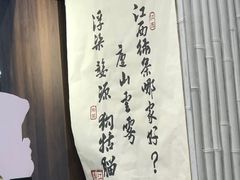 江西绿茶哪家好？
庐山云雾
浮梁婺源狗牯脑